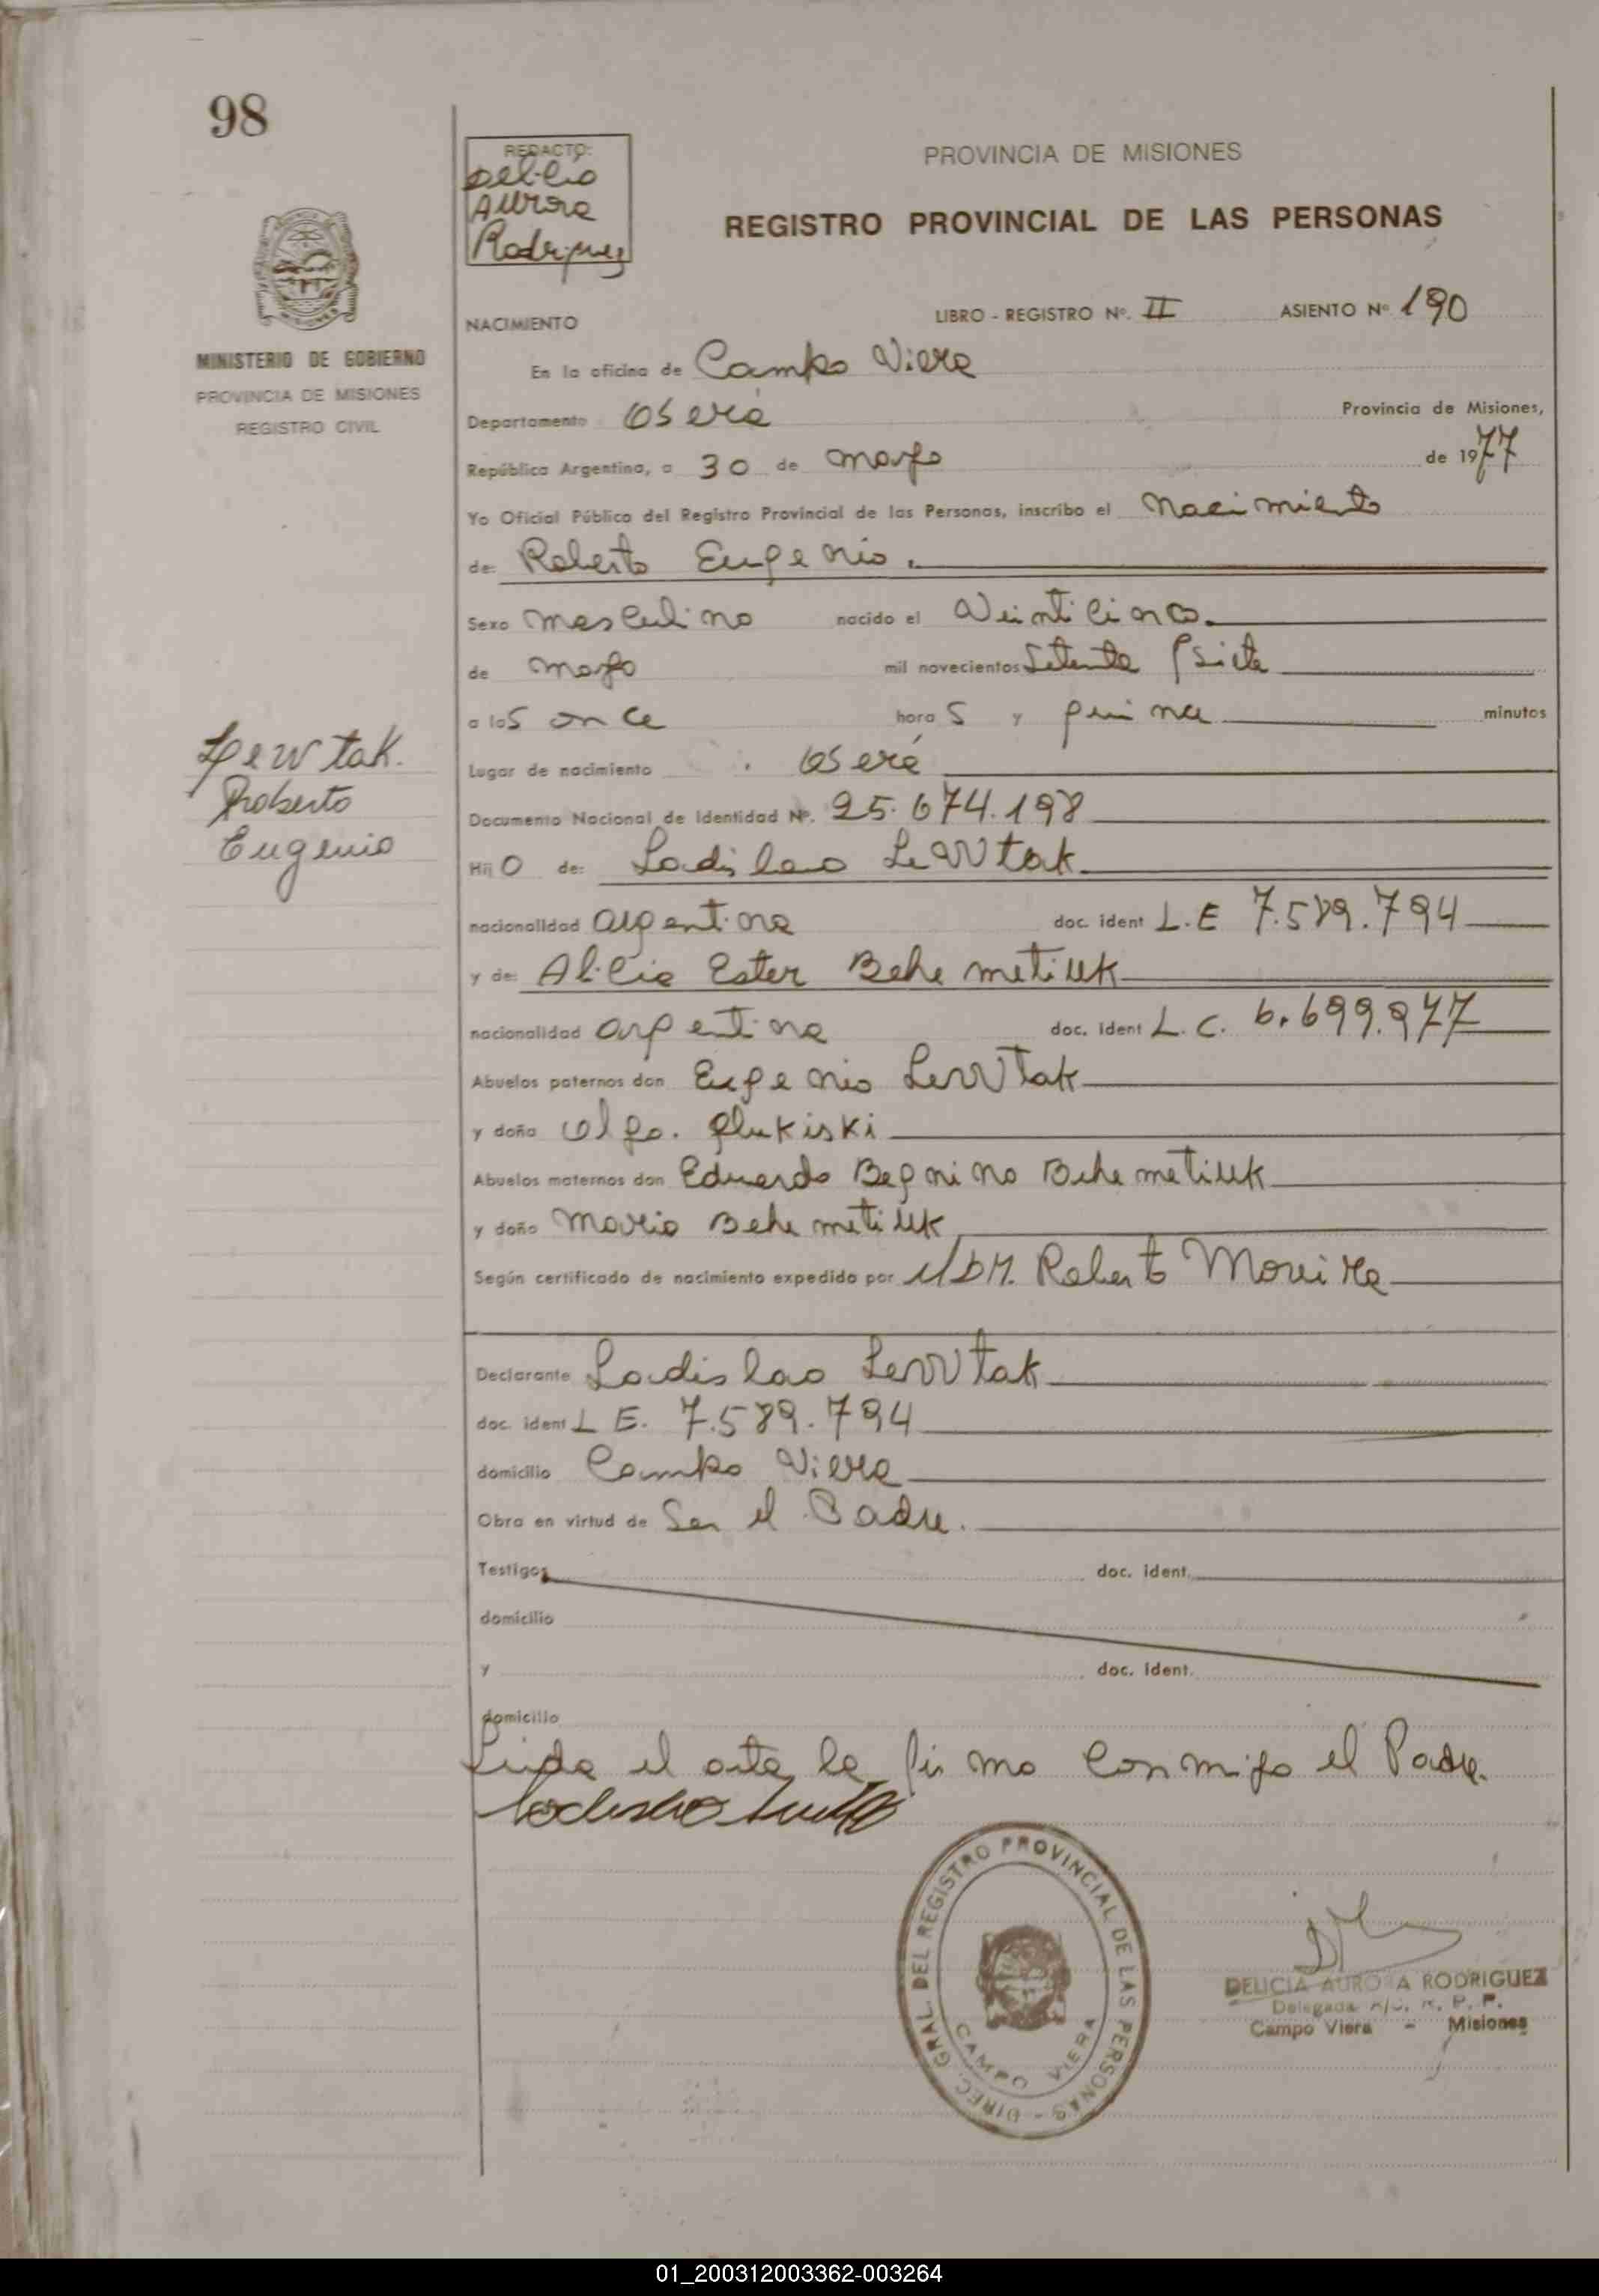 98
REDACTO:
Delicia
Aurora
Rodriguez
PROVINCIA DE MISIONES
REGISTRO PROVINCIAL DE LAS PERSONAS
MINISTERIO DE GOBIERNO
PROVINCIA DE MISIONES
REGISTRO CIVIL
NACIMIENTO
LIBRO - REGISTRO Nº. II ASIENTO Nº 190
En la oficina de Campo Viera
Departamento Oberá Provincia de Misiones,
República Argentina, a 30 de mayo de 1977
Yo Oficial Público del Registro Provincial de las Personas, inscribo el Nacimiento
de: Roberto Eugenio.
Sexo masculino nacido el Veinticinco
de mayo mil novecientos Setenta y siete
a las once horas y quince minutos
Lugar de nacimiento Oberá
Lewtak.
Roberto
Eugenio
Documento Nacional de Identidad Nº. 25.674.198
Hijo de: Ladislao Lewtak
nacionalidad argentina doc. ident L.E 7.589.794
y de: Alicia Ester Behemetiuk
nacionalidad argentina doc. ident L.C. 6.699.977
Abuelos paternos don Eugenio Lewtak
y doña Olga. Glukiski
Abuelos maternos don Eduardo Begnino Behemetiuk
y doña Maria Behemetiuk
Según certificado de nacimiento expedido por Roberto Moreira
Declarante Ladislao Lewtak
doc. ident L E. 7.589.794
domicilio Campo Viera
Obra en virtud de Ser el Padre.
Testigos doc. ident.
domicilio
y doc. ident.
domicilio
Leida el acta la firma conmigo el Padre.
DIREC. GRAL. DEL REGISTRO PROVINCIAL DE LAS PERSONAS
CAMPO VIERA
DELICIA AURORA RODRIGUEZ
Delegada R/C. R. P. P.
Campo Viera - Misiones
01_200312003362-003264